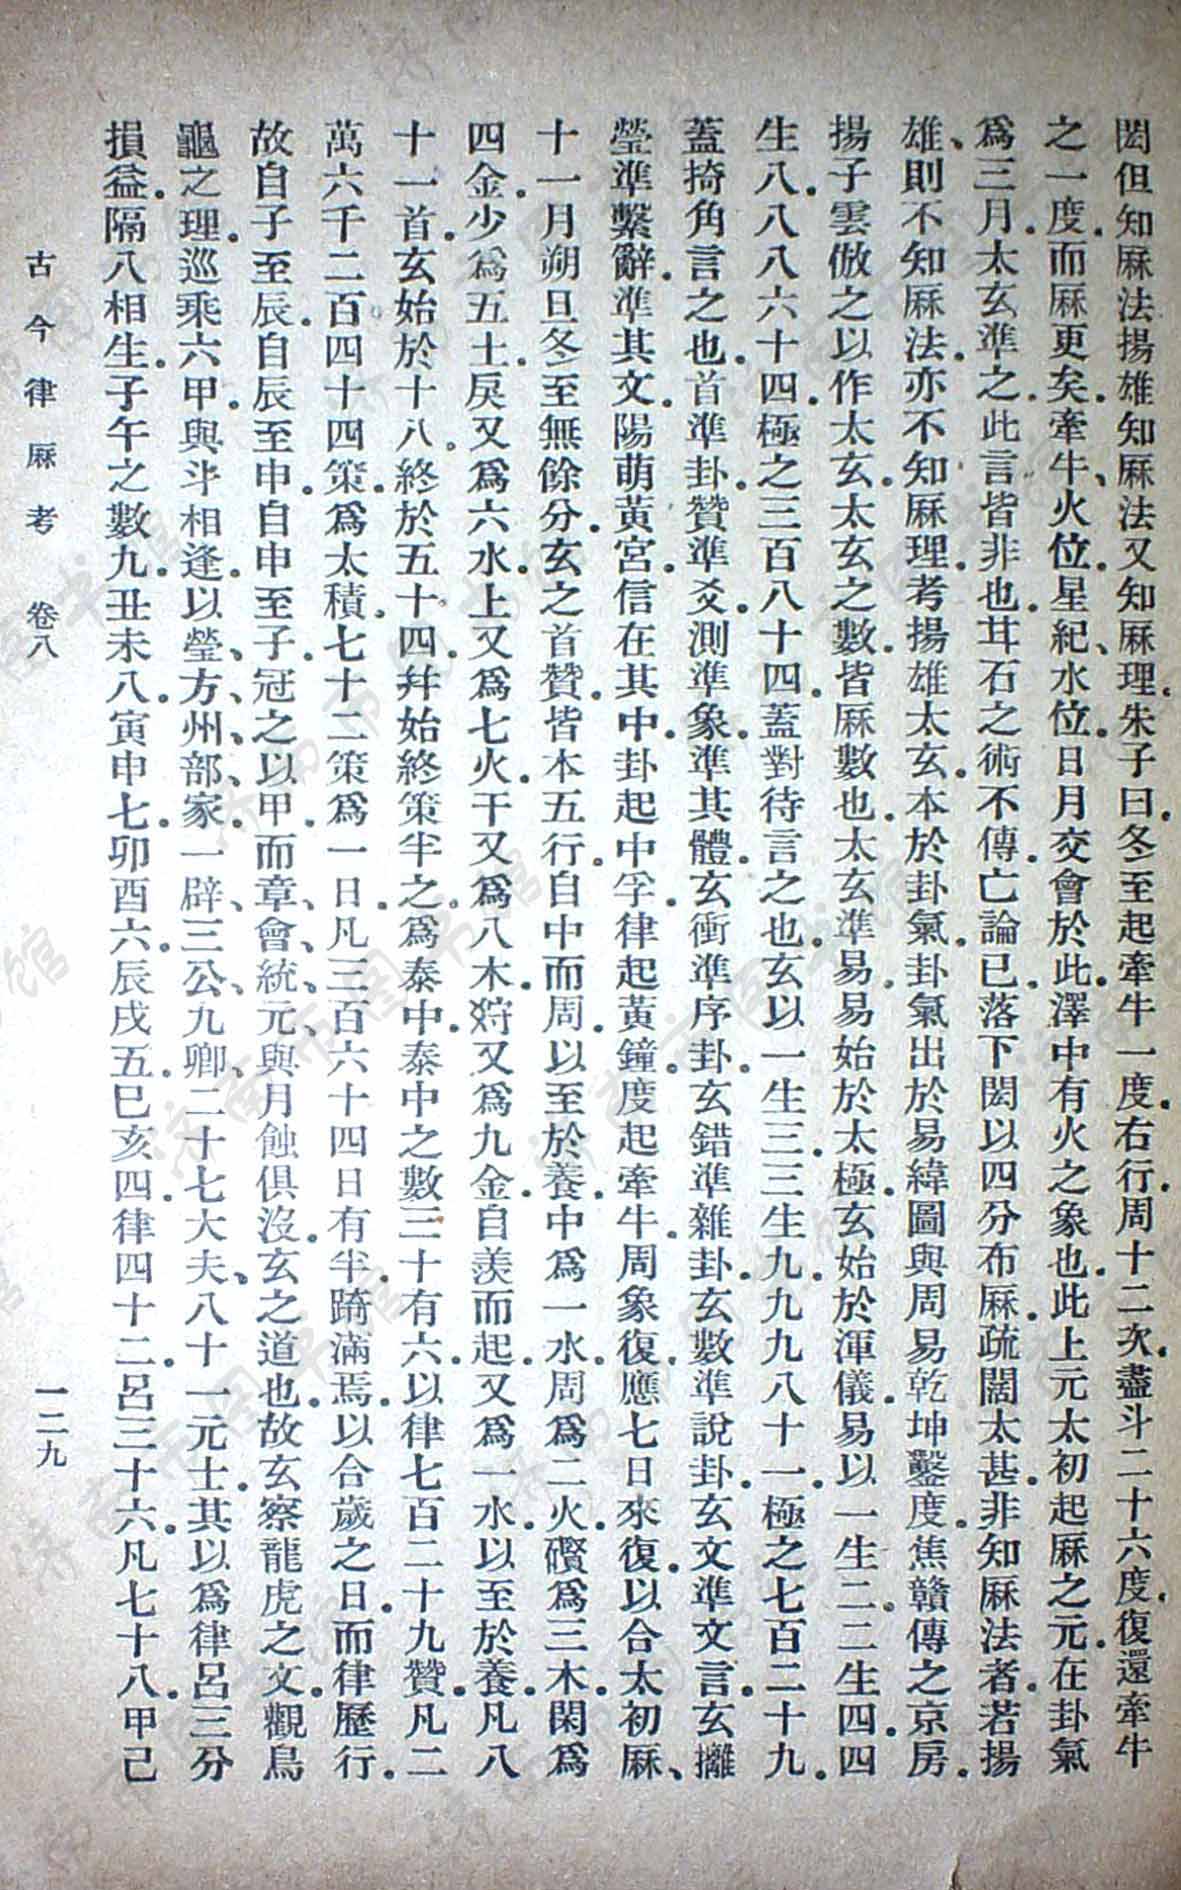 閎但知厤法揚雄知厤法又知厤理朱子曰冬至起牽牛一度右行周十二次盡斗二十六度復還牽牛
之一度而厤更矣牽牛火位星紀水位日月交會於此澤中有火之象也此上元太初起厤之元在卦氣
爲三月太玄準之此言皆非也甘石之術不傳亡論已落下閎以四分布厤疏闊太甚非知厤法者若揚
雄則不知厤法亦不知厤理考揚雄太玄本於卦氣卦氣出於易緯圖與周易乾坤鑿度焦贛傳之京房
揚子雲倣之以作太玄太玄之數皆厤數也太玄準易易始於太極玄始於渾儀易以一生二二生四四
生八八八六十四極之三百八十四蓋對待言之也玄以一生三三生九九九八十一極之七百二十九
蓋掎角言之也首準卦贊準爻測準象準其體玄衝準序卦玄錯準雜卦玄數準說卦玄文準文言玄攡
瑩準繫辭準其文陽萌黃宮信在其中卦起中孚律起黃鐘度起牽牛周象復應七日來復以合太初厤
十一月朔旦冬至無餘分玄之首贊皆本五行自中而周以至於養中爲一水周爲二火礥爲三木閑爲
四金少爲五土戾又爲六水上又爲七火干又爲八木狩又爲九金自羨而起又爲一水以至於養凡八
十一首玄始於十八終於五十四并始終策半之爲泰中泰中之數三十有六以律七百二十九贊凡二
萬六千二百四十四策爲太積七十二策爲一日凡三百六十四日有半踦滿焉以合歲之日而律歷行
故自子至辰自辰至申自申至子冠之以甲而章會統元與月蝕俱沒玄之道也故玄察龍虎之文觀鳥
龜之理巡乘六甲與斗相逢以瑩方州部家一辟三公九卿二十七大夫八十一元士其以爲律呂三分
損益隔八相生子午之數九丑未八寅申七卯酉六辰戌五巳亥四律四十二呂三十六凡七十八甲己
古今律厤考 卷八 一二九